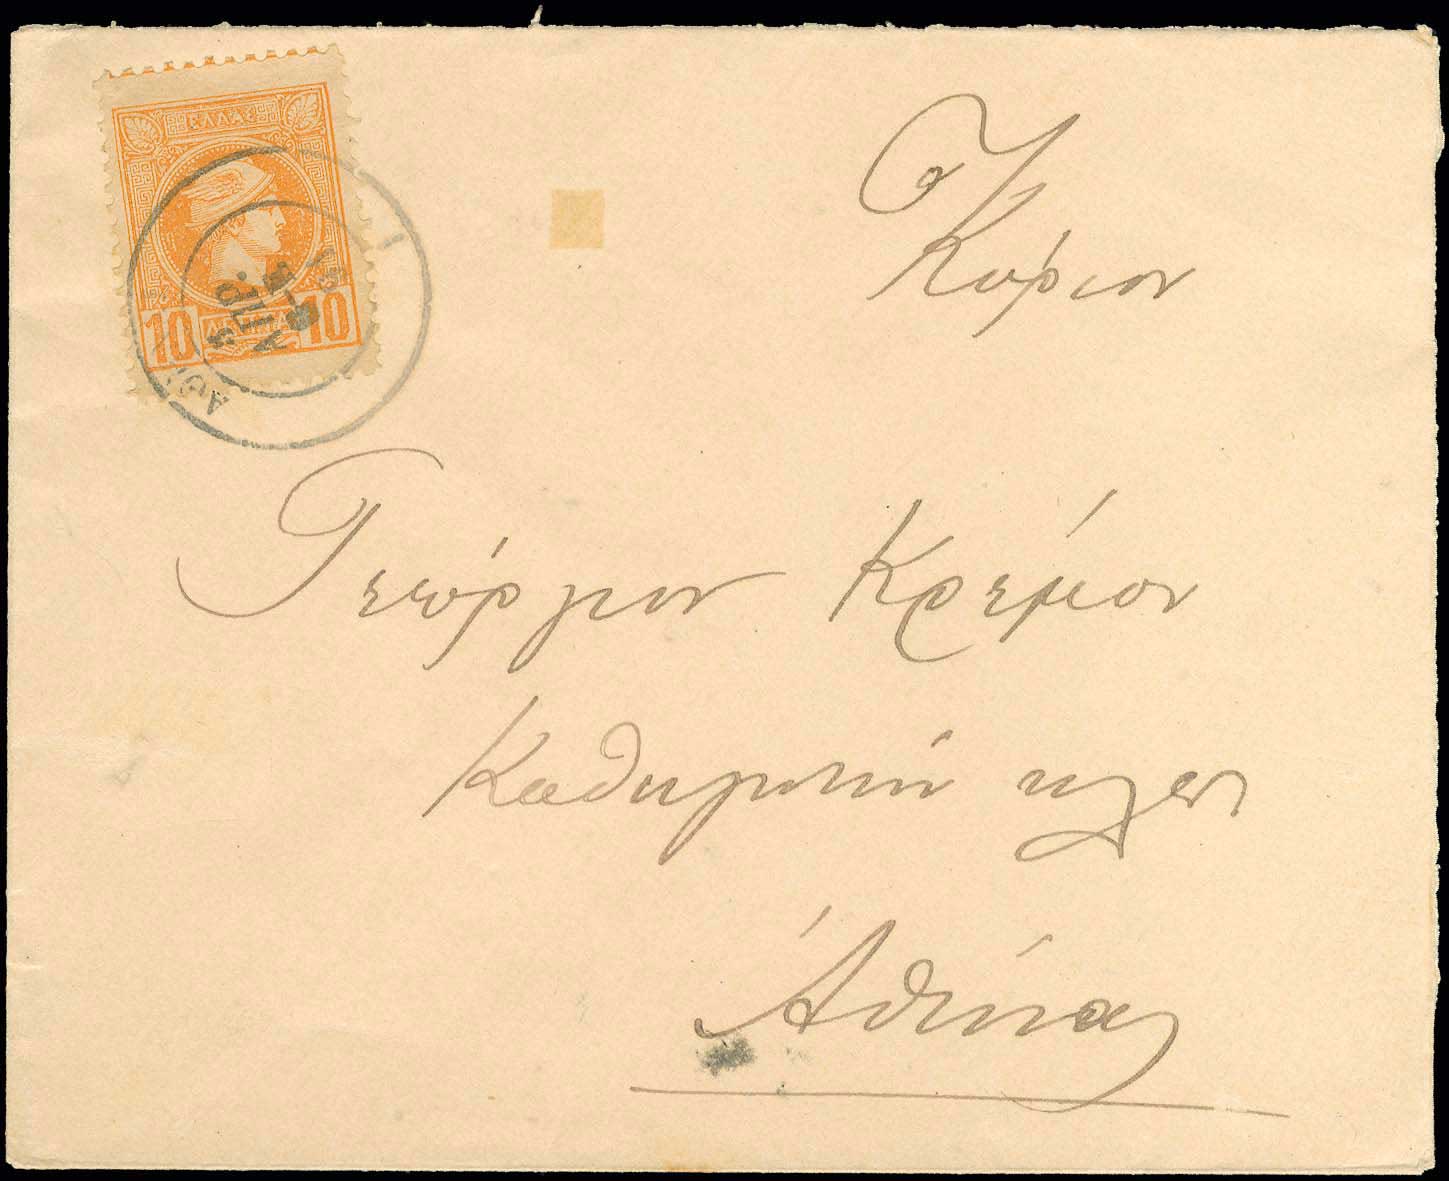 ΕΛΛΑΣ
10 ΛΕΠΤΑ 10
ΑΠΡ.
Κύριον
Γεώργιον Κρέμον
Καθηγητὴν κλπ
Ἀθήνας